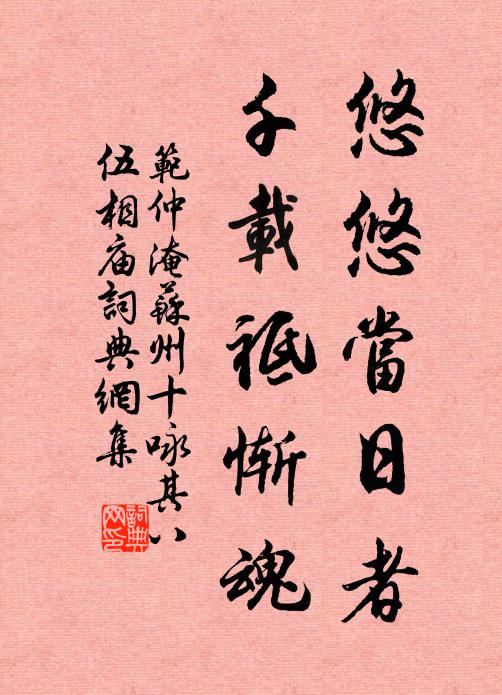 悠悠當日者
千載祗慚魂
範仲淹蘇州十咏其八
伍相庙詞典網集
詞典网印